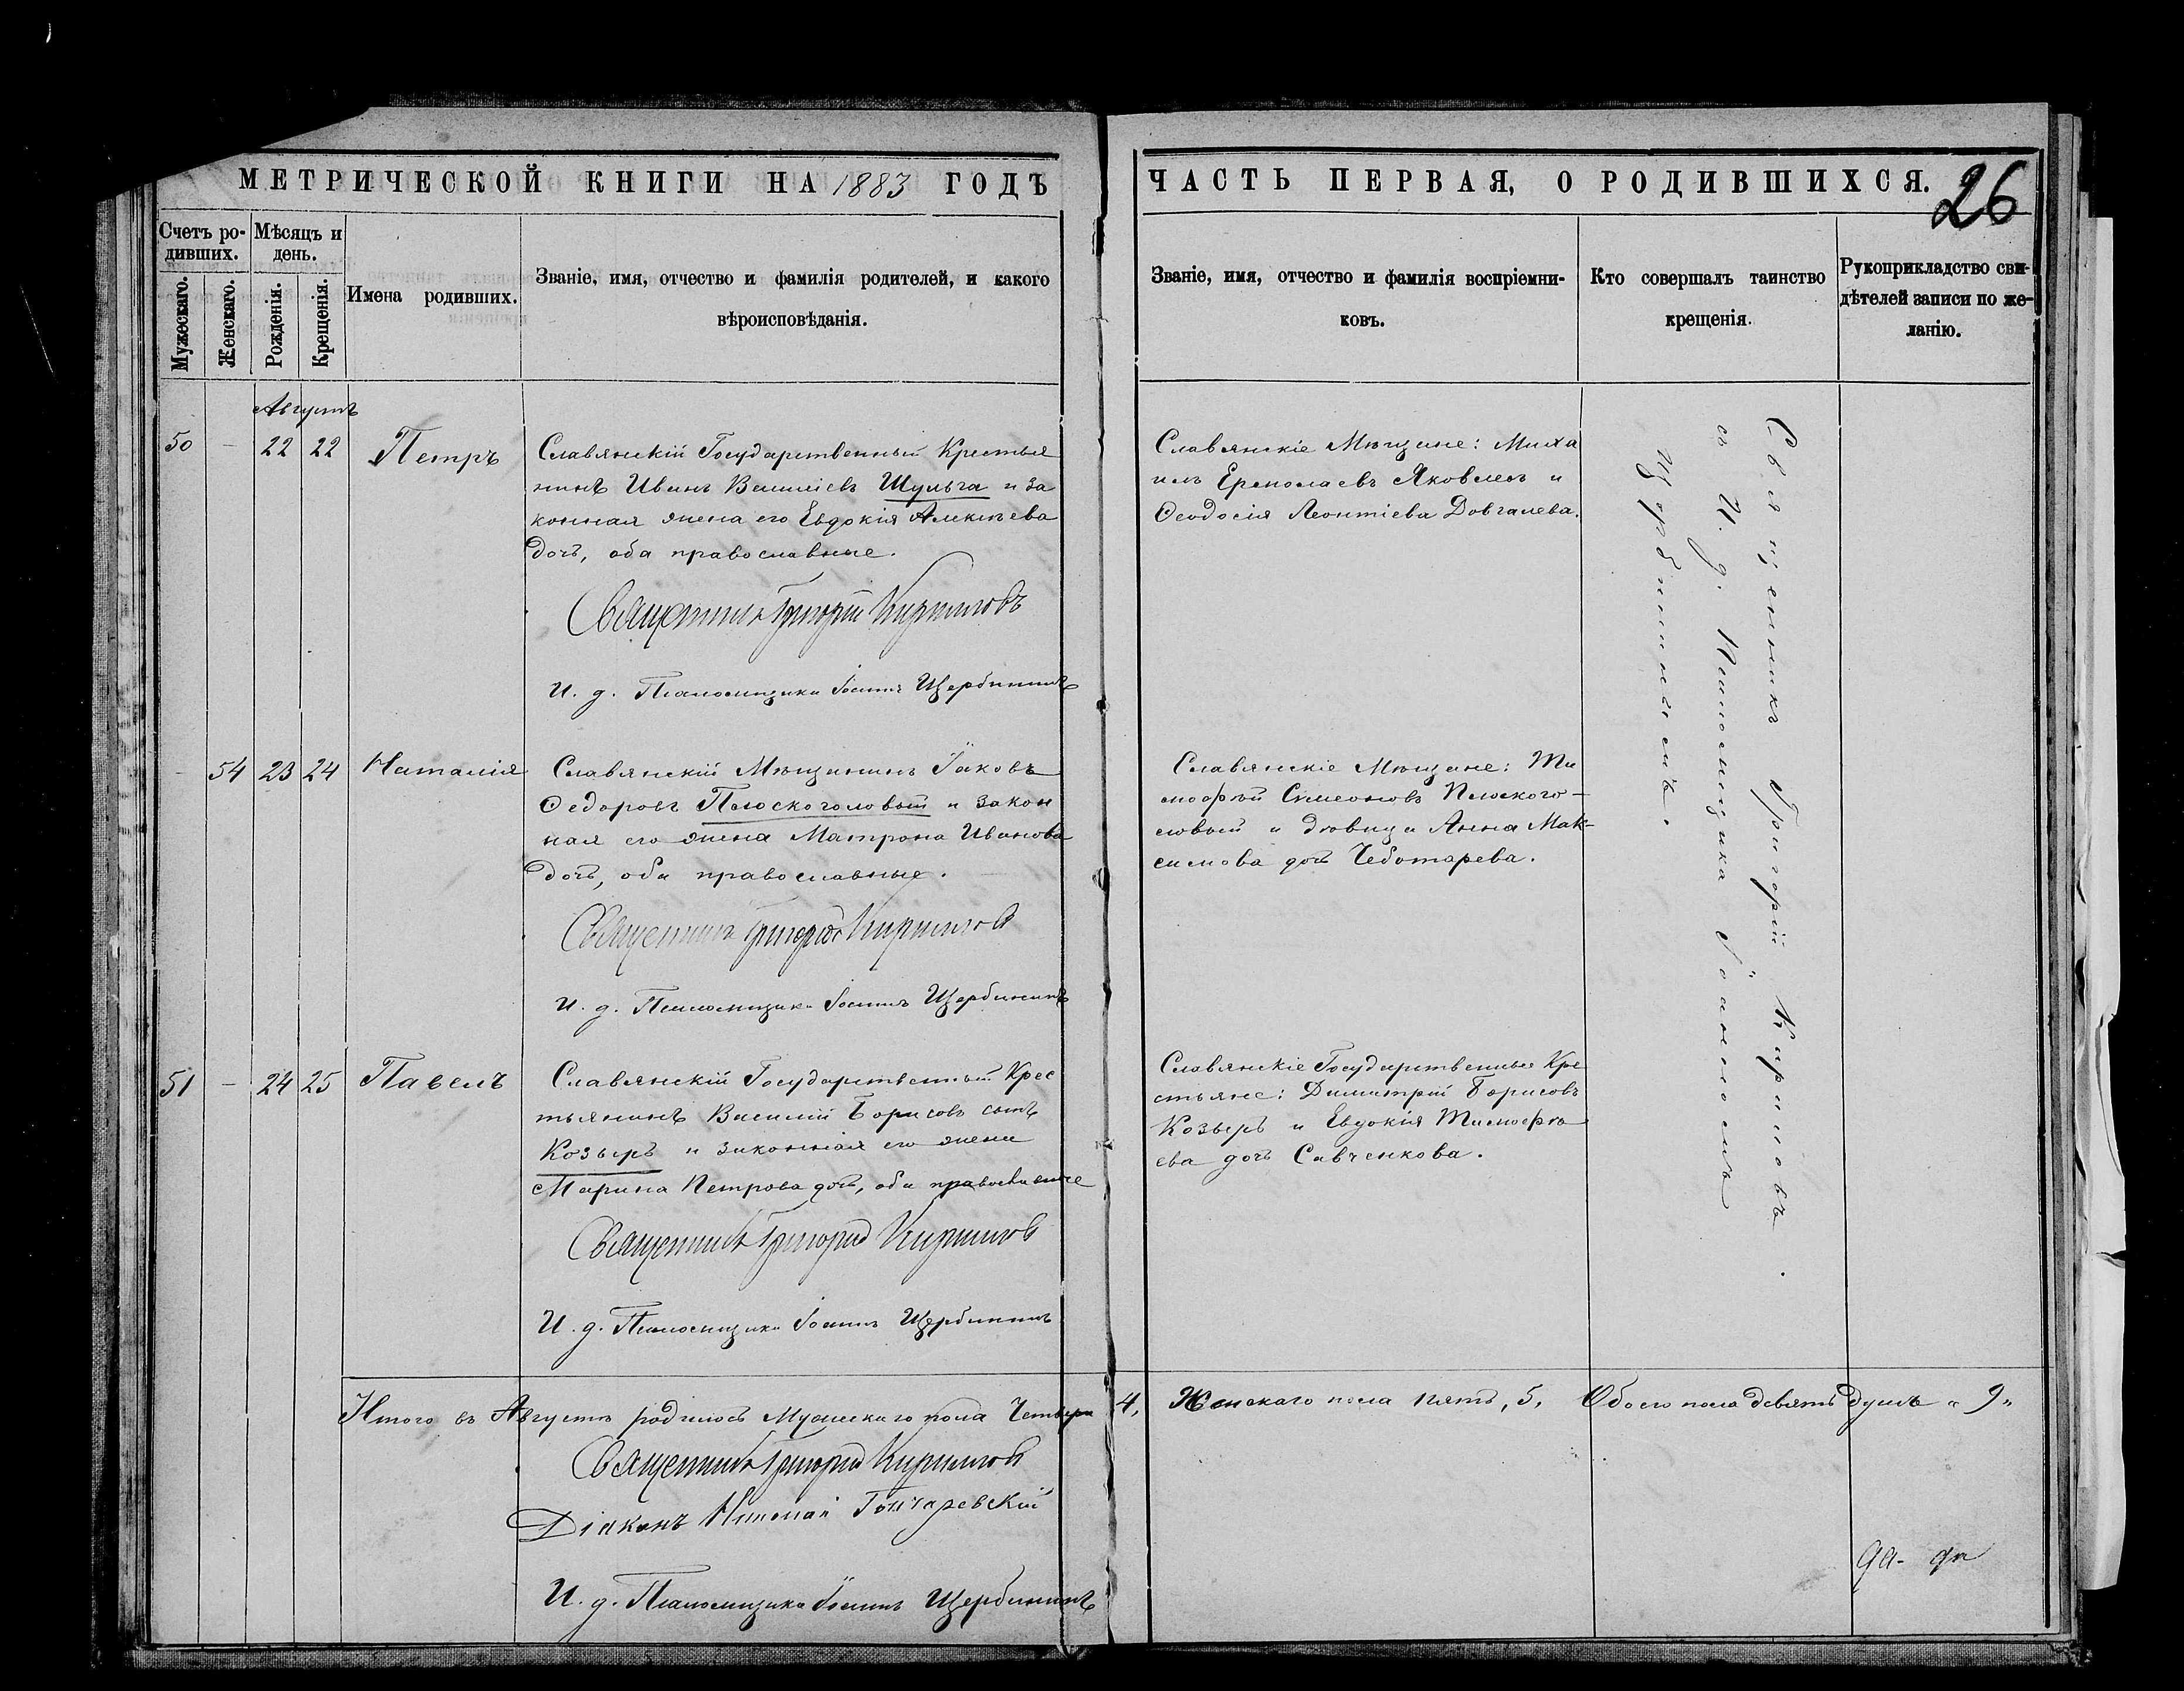 МЕТРИЧЕСКОЙ КНИГИ НА 1883 ГОДЪ
Счетъ ро-
дившихъ.
Мѣсяцъ и
день.
Мужескаго.
Женскаго.
Рожденія.
Крещенія.
Имена родившихъ.
Званіе, имя, отчество и фамилія родителей, и какого
вѣроисповѣданія.
Августъ
50 - 22 22 Петръ
Славянскій Государственный Крестья
нинъ Иванъ Василіевъ Шульга и за
конная жена его Евдокія Алексѣева
дочь, оба православные.
Священникъ Григорій Кирилловъ
И. д. Псаломщика Іоаннъ Щербининъ
- 54 23 24 Наталія
Славянскій Мѣщанинъ Іаковъ
Ѳедоровъ Плоскоголовый и закон
ная его жена Матрона Иванова
дочь, оба православные.
Священникъ Григорій Кирилловъ
И. д. Псаломщика Іоаннъ Щербининъ
51 - 24 25 Павелъ
Славянскій Государственный Крес
тьянинъ Василій Борисовъ сынъ
Козырь и законная его жена
Марина Петрова дочь, оба православные
Священникъ Григорій Кирилловъ
И. д. Псаломщика Іоаннъ Щербининъ
Итого въ Августѣ родилось Мужескаго пола Четыре
Священникъ Григорій Кирилловъ
Діаконъ Николай Гончаревскій
И. д. Псаломщика Іоаннъ Щербининъ
ЧАСТЬ ПЕРВАЯ, О РОДИВШИХСЯ.
26
Званіе, имя, отчество и фамилія воспріемни-
ковъ.
Кто совершалъ таинство
крещенія.
Рукоприкладство сви-
дѣтелей записи по же-
ланію.
Славянскіе Мѣщане: Миха
илъ Ермолаевъ Яковлевъ и
Ѳеодосія Леонтіева Довгалева.
Славянскіе Мѣщане: Ти
моѳѣй Симеоновъ Плоского-
ловый и дѣвица Анна Мак-
симова дочь Чеботарева.
Славянскіе Государственные Кре
стьяне: Димитрій Борисовъ
Козырь и Евдокія Тимоѳѣ
ева дочь Савченкова.
Священникъ Григорій Кирилловъ
съ И. д. Псаломщика Іоанномъ
Щербининымъ.
4, Женскаго пола пять, 5, Обоего пола девять душъ „ 9 „